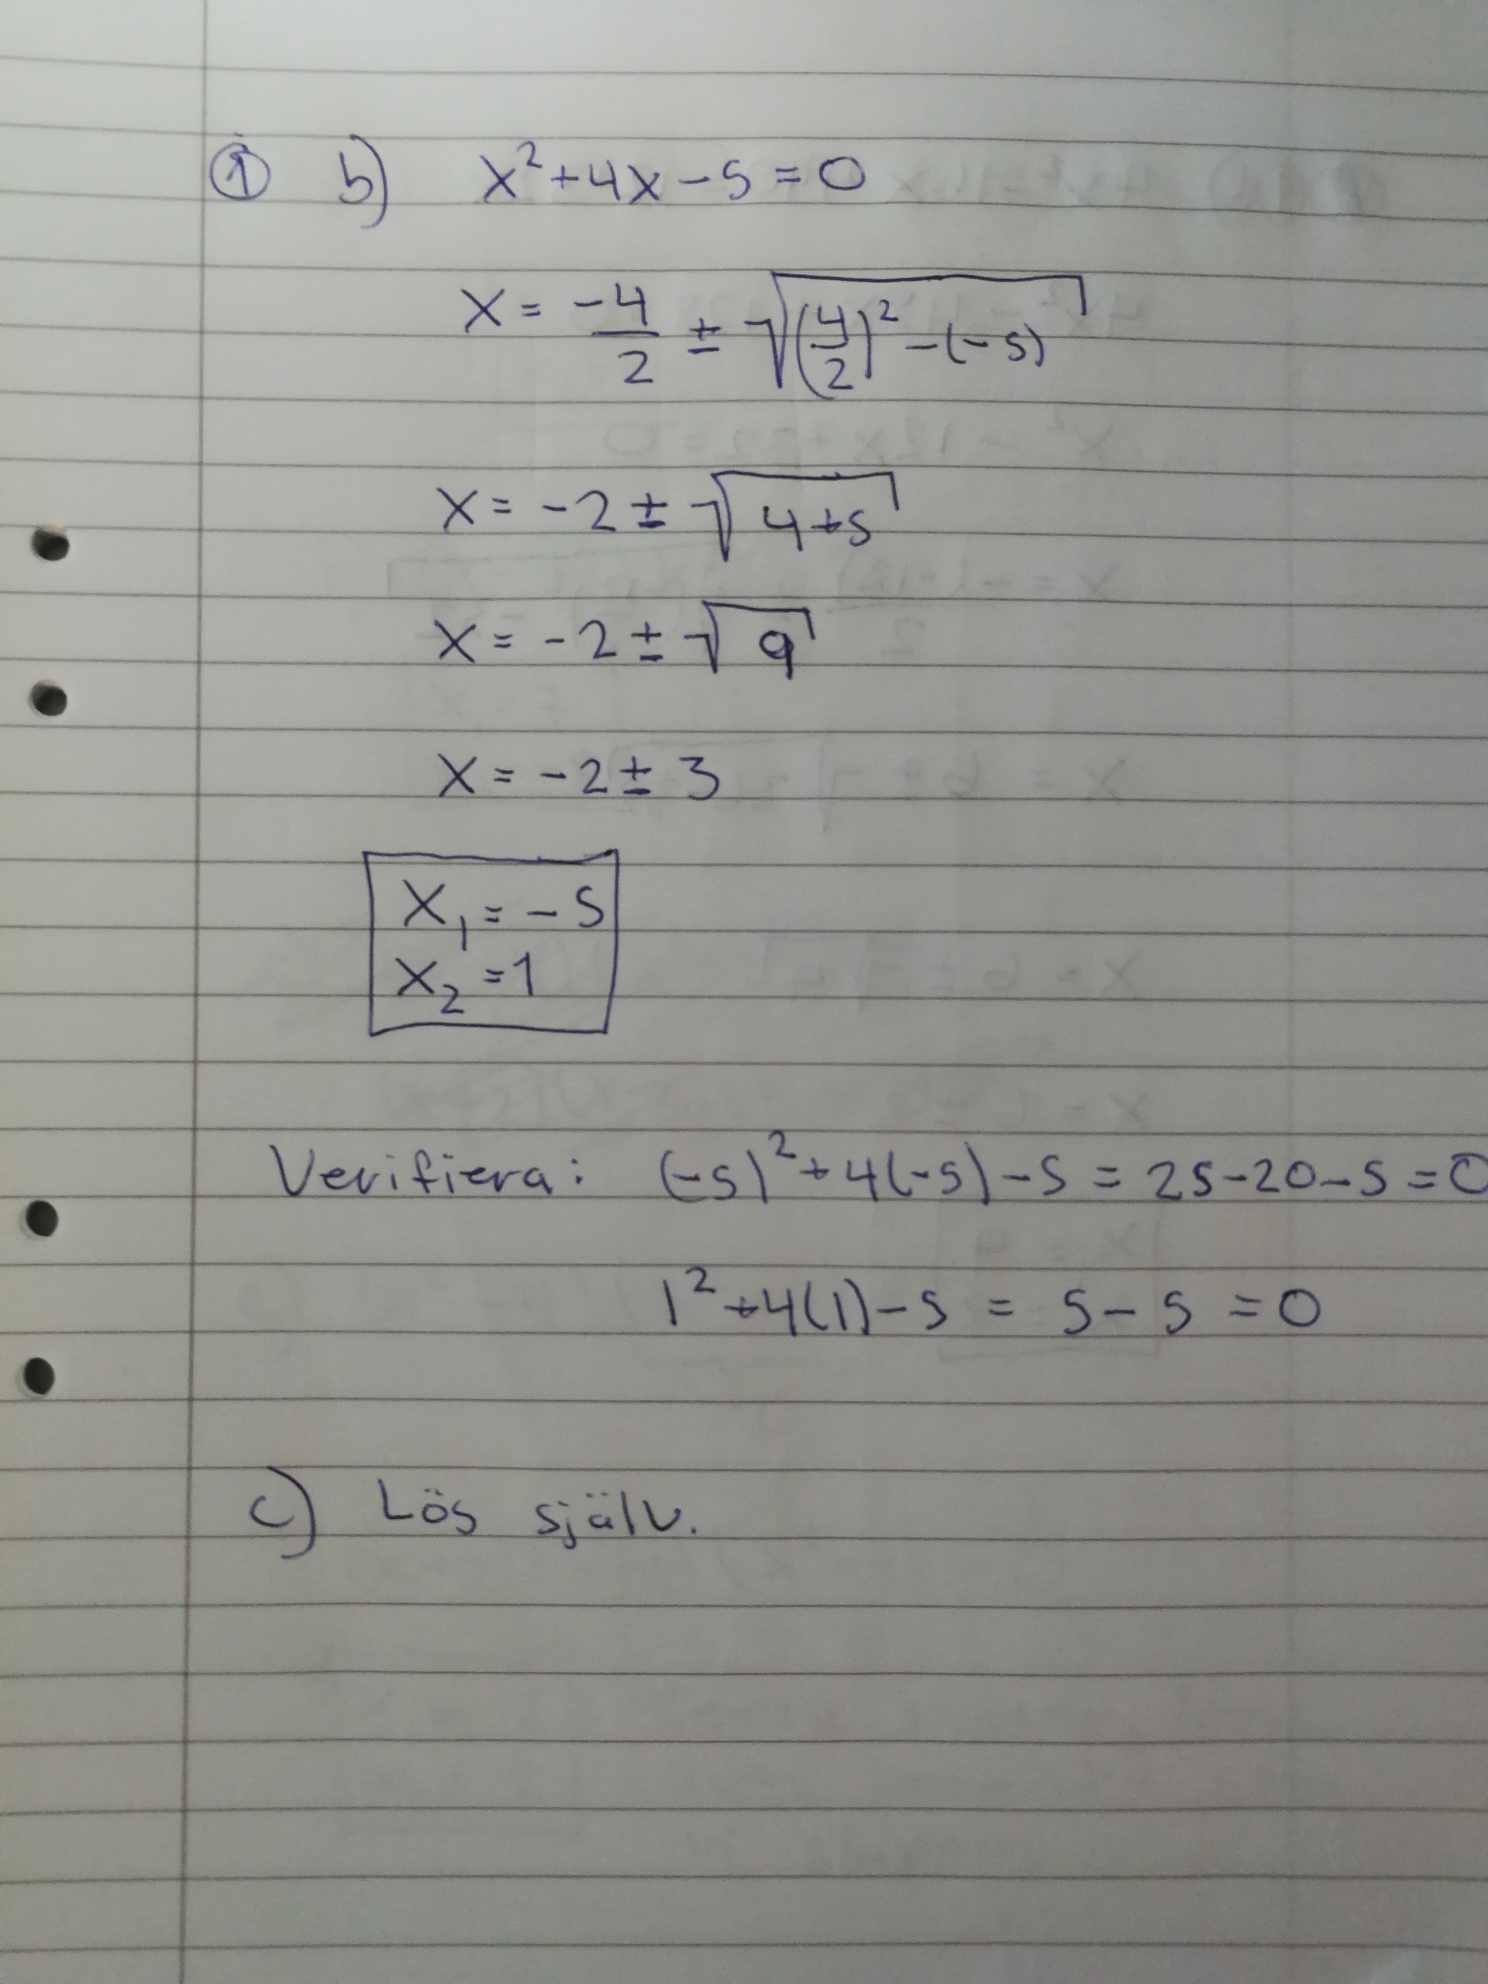 ① b) x² + 4x - 5 = 0
x = -4/2 ± √((4/2)² - (-5))
x = -2 ± √(4+5)
x = -2 ± √9
x = -2 ± 3
x₁ = -5
x₂ = 1
Verifiera: (-5)² + 4(-5) - 5 = 25 - 20 - 5 = 0
1² + 4(1) - 5 = 5 - 5 = 0
c) Lös själv.